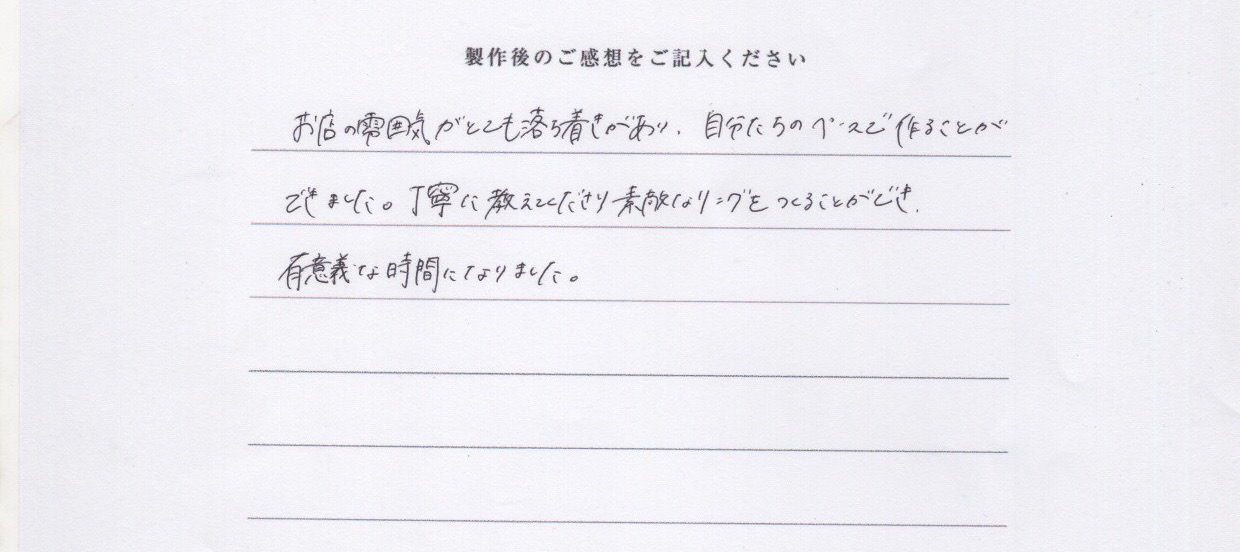 製作後のご感想をご記入ください
お店の雰囲気がとても落ち着きがあり、自分たちのペースで作ることが
できました。丁寧に教えてくださり素敵なリングをつくることができ、
有意義な時間になりました。